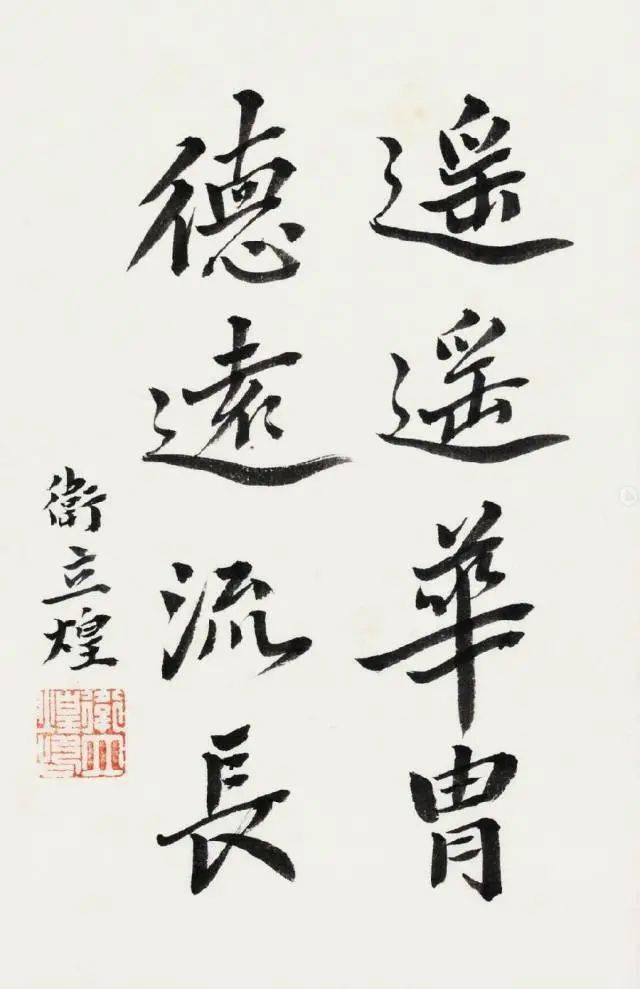 遥遥華胄
德遠流長
衛立煌
衛立煌印